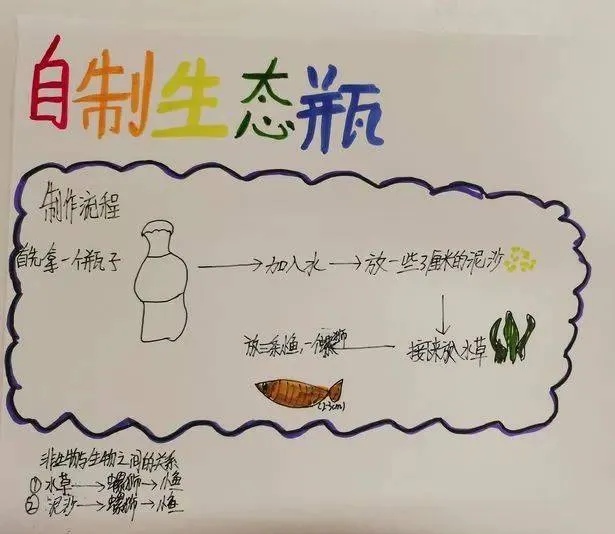 自制生态瓶
制作流程
首先拿一个瓶子 → 加入水 → 放一些3厘米的泥沙
接下来放入水草
放三条小鱼,一个螺蛳
(2-3cm)
非生物与生物之间的关系
① 水草 → 螺蛳 → 小鱼
② 泥沙 → 螺蛳 → 小鱼